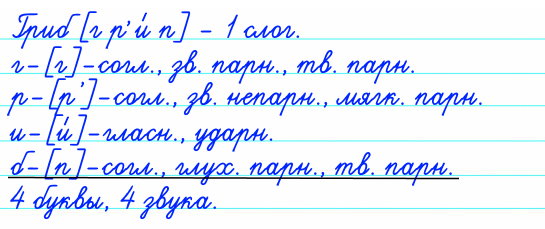 Гриб [г р' и́ п] – 1 слог.
г–[г]–согл., зв. парн., тв. парн.
р–[р']–согл., зв. непарн., мягк. парн.
и–[и́]–гласн., ударн.
б–[п]–согл., глух. парн., тв. парн.
4 буквы, 4 звука.